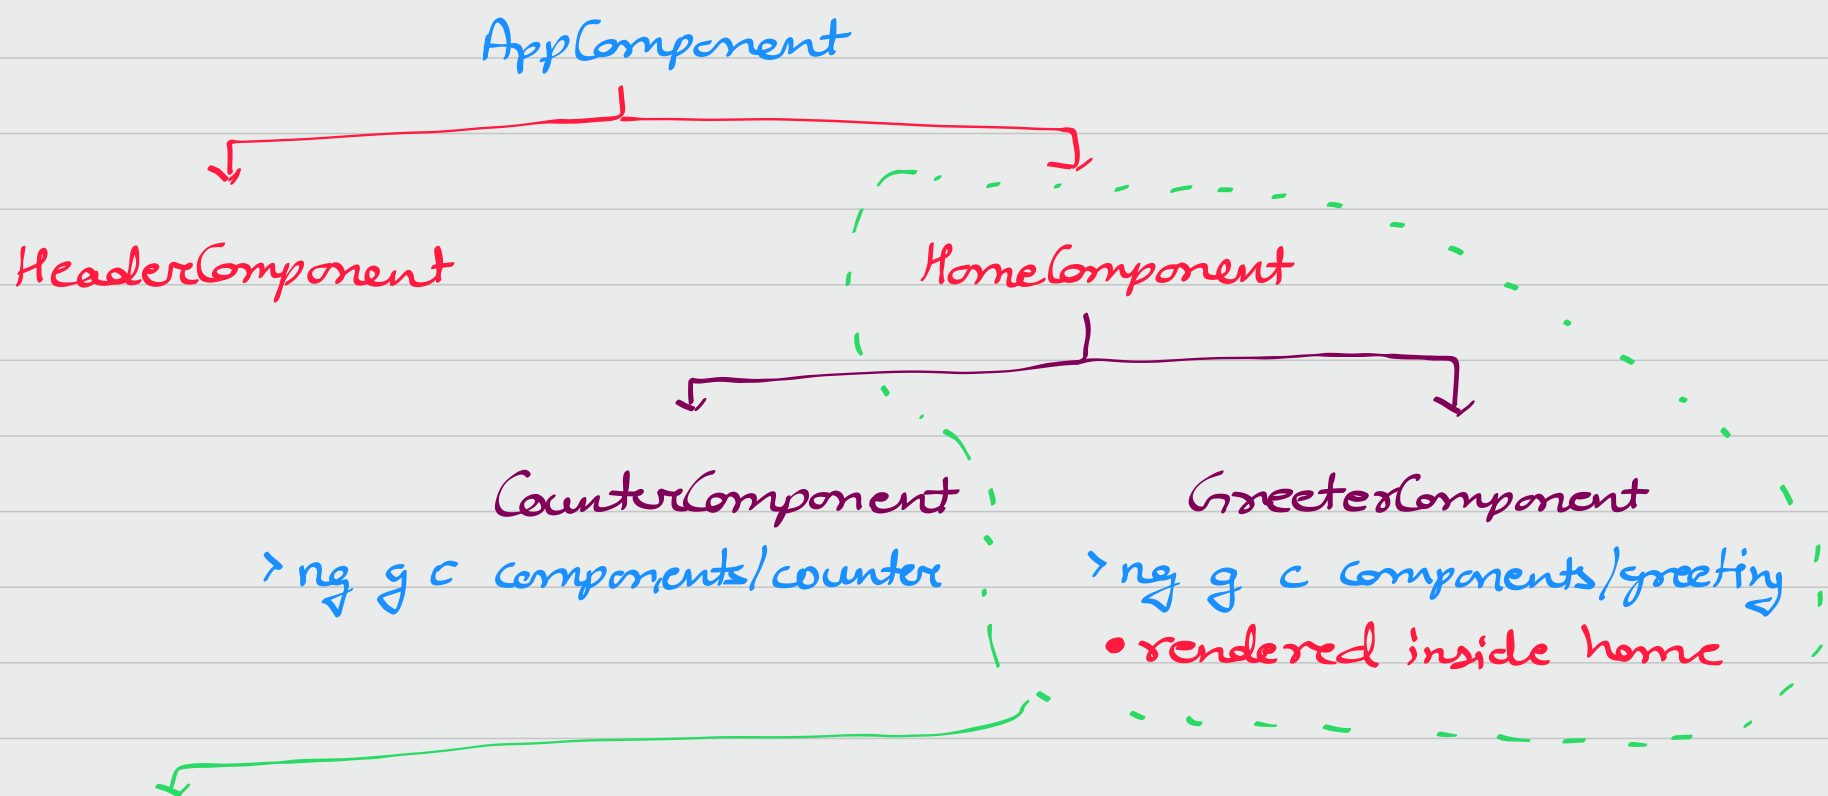 AppComponent
HeaderComponent HomeComponent
CounterComponent GreeterComponent
> ng g c components/counter > ng g c components/greeting
• rendered inside home